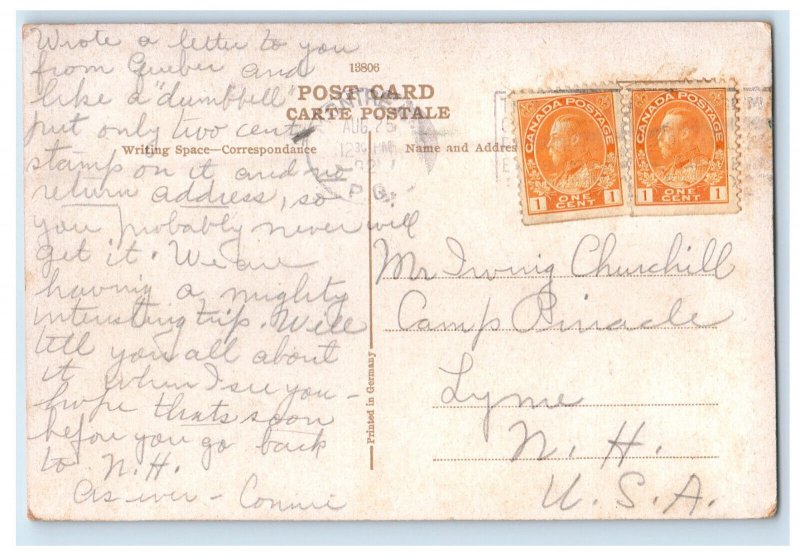 Wrote a letter to you
from Quebec and
like a "dumbbell"
put only two cent
stamp on it and no
return address, so
you probably never will
get it. We are
having a mighty
interesting trip. Will
tell you all about
it when I see you -
hope thats soon
before you go back
to N.H.
As ever - Connie
13806
POST CARD
CARTE POSTALE
Writing Space—Correspondence
Name and Address
AUG 25
P.Q.
CANADA POSTAGE
1 ONE CENT 1
CANADA POSTAGE
1 ONE CENT 1
Mr Irving Churchill
Camp Pinacle
Lyme
N. H.
U. S. A.
Printed in Germany